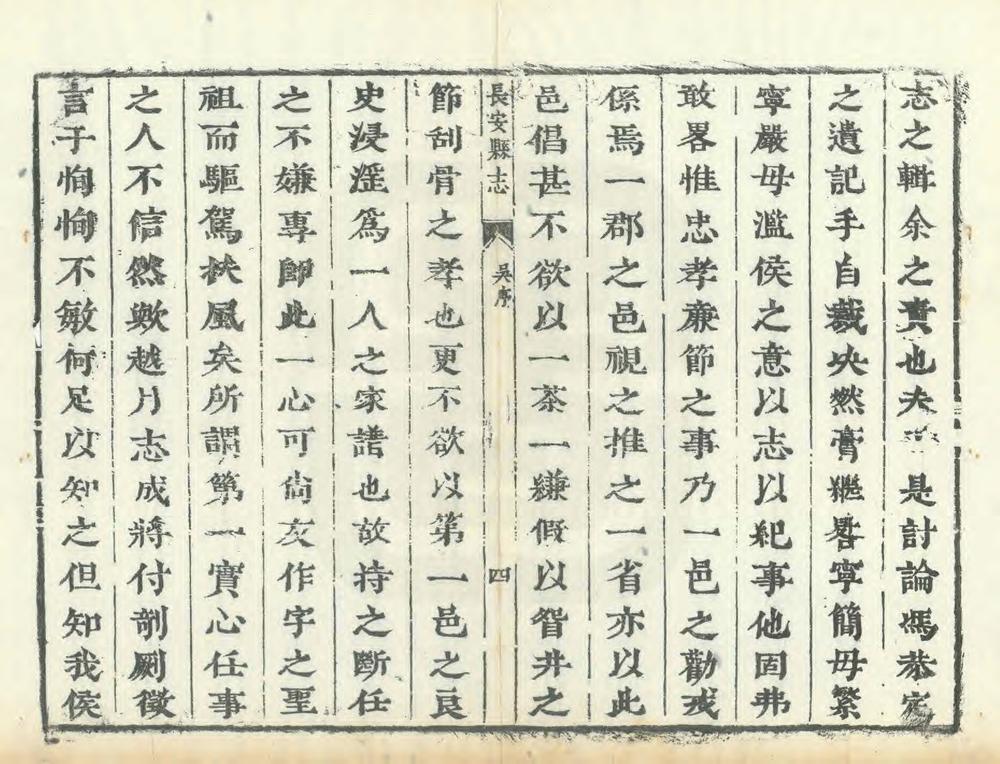 志之輯余之責也夫是討論馮恭定
之遺記手自裁决燃膏繼晷寧簡毋繁
寧嚴毋濫侯之意以志以紀事他固弗
敢畧惟忠孝亷節之事乃一邑之勸戒
係焉一郡之邑視之推之一省亦以此
邑倡甚不欲以一茶一縑假以眢井之
長安縣志
吳序
四
節刮骨之孝也更不欲以第一邑之良
史浸滛爲一人之家譜也故持之斷任
之不嫌專卽此一心可尙友作字之聖
祖而驅駕扶風矣所謂第一實心任事
之人不信然歟越月志成將付剞劂徵
言于恂恂不敏何足以知之但知我侯